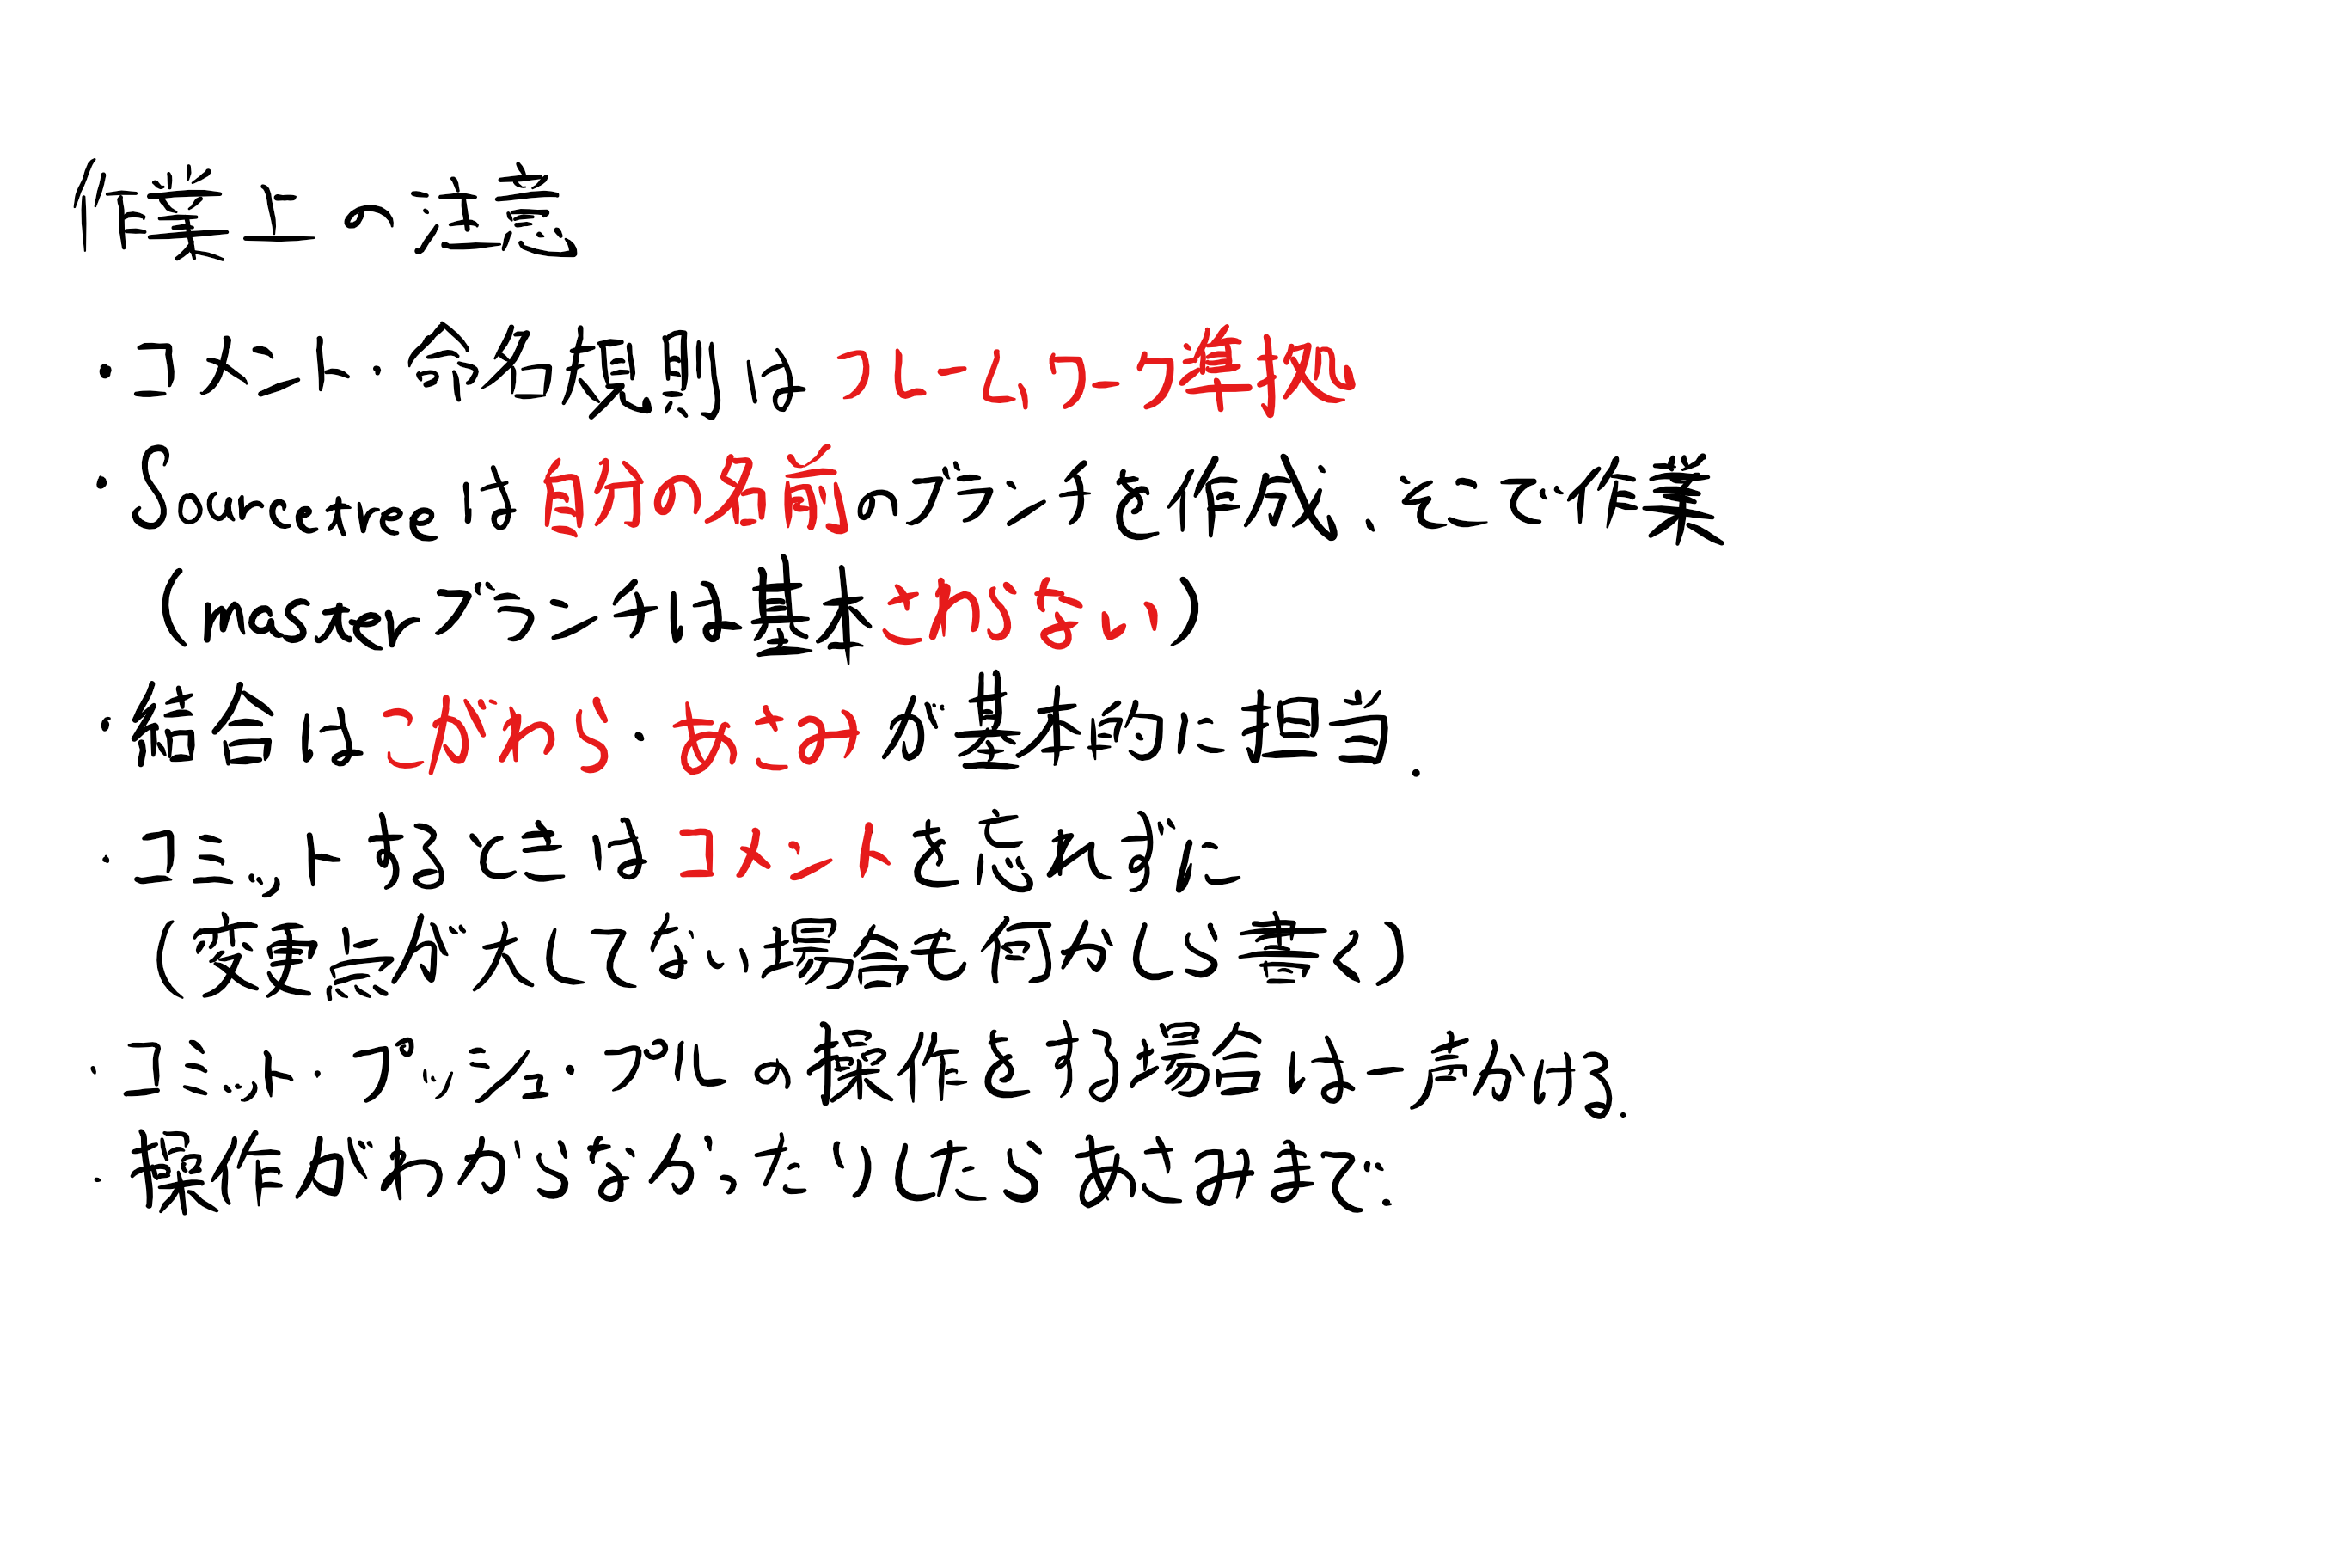 作業上の注意
・コメント・命名規則はフレームワーク準拠
・Sourcetreeは自分の名前のブランチを作成、そこで作業
(masterブランチは基本さわらない)
・結合はこがわら・あさみが基本的に担当.
・コミットするときはコメントを忘れずに
(変更点が大してない場合も何かしら書く)
・コミット・プッシュ・プルの操作をする場合は一声かける.
・操作がわからなかったりしたらあさみまで.